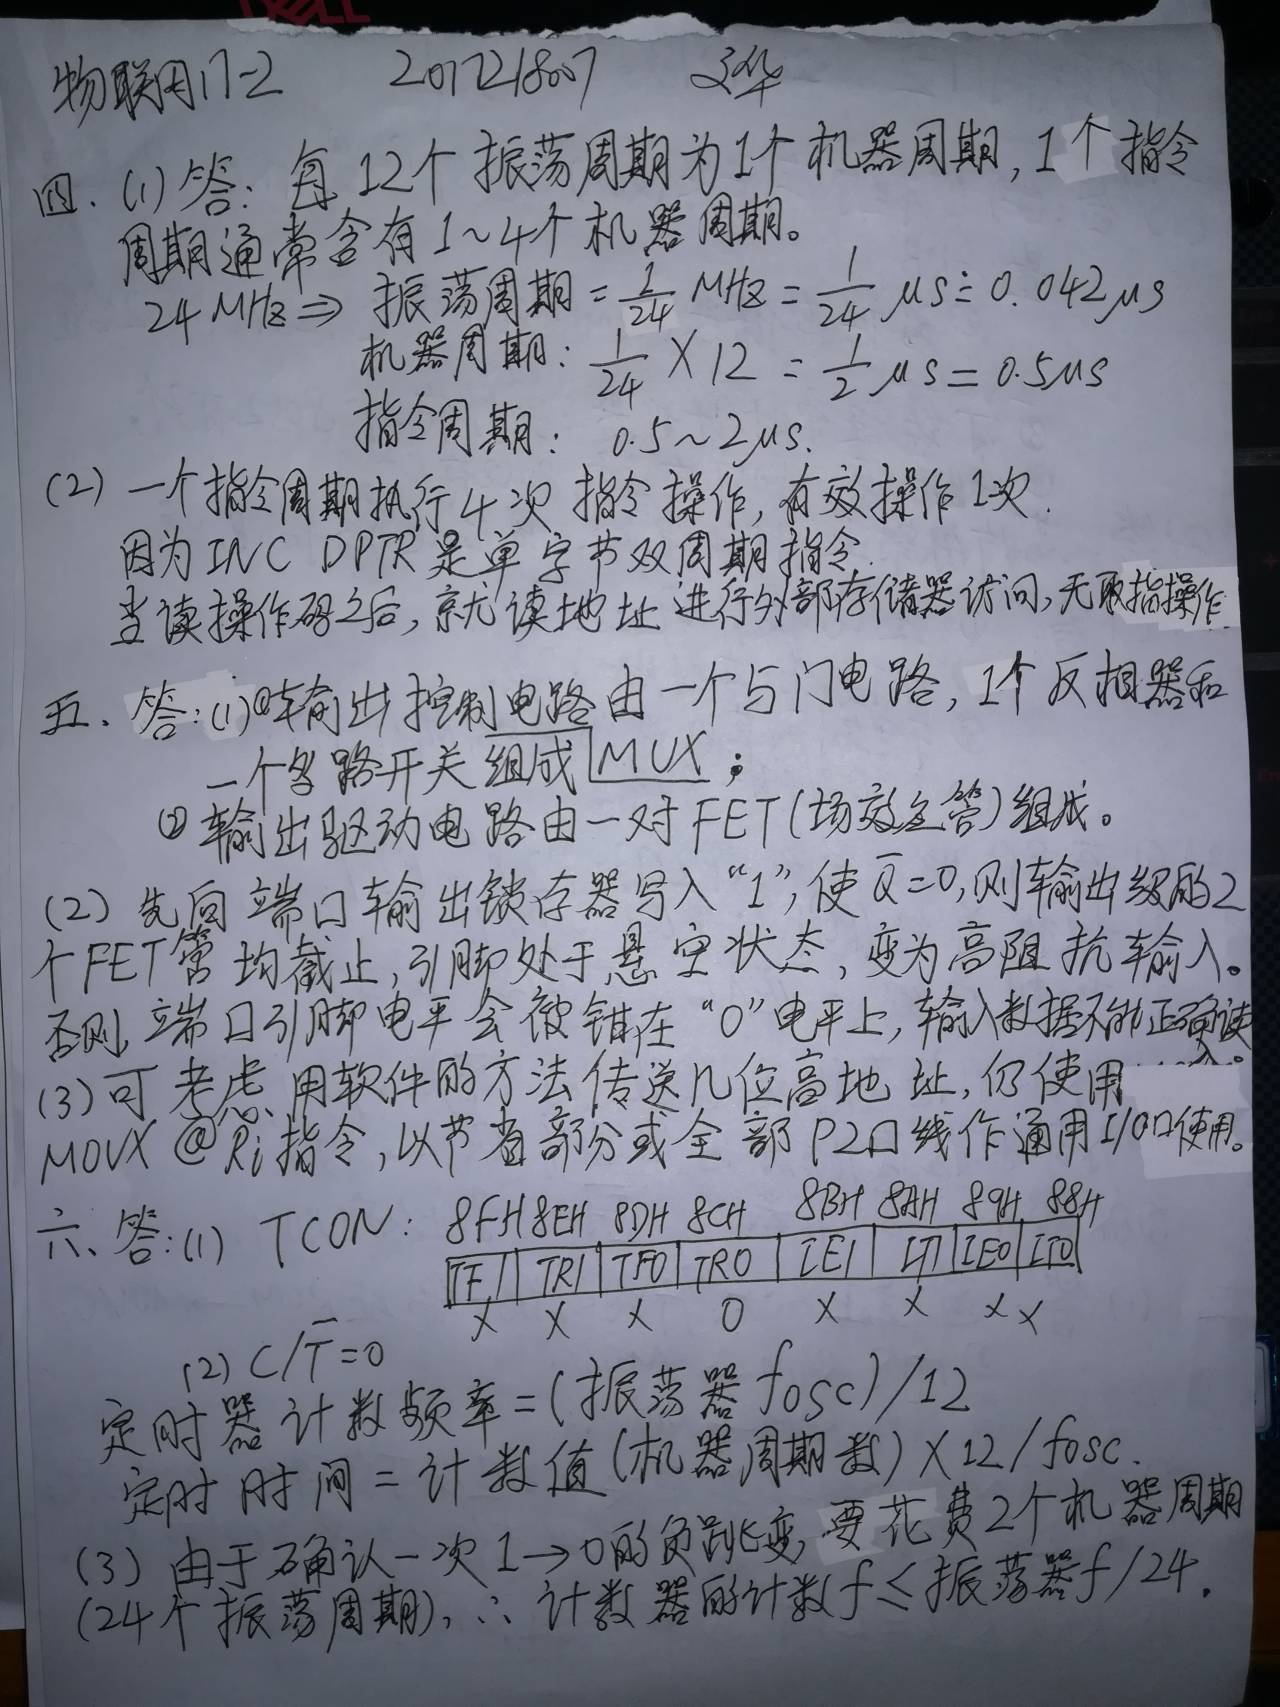 DELL
物联网17-2 2017218007
四. (1) 答: 每 12个 振荡周期为1个 机器周期, 1个 指令
周期通常含有 1~4个 机器周期。
24 MHz ⇒ 振荡周期 = 1/24 MHz = 1/24 μs ≐ 0.042μs
机器周期: 1/24 × 12 = 1/2 μs = 0.5μs
指令周期: 0.5~2μs.
(2) 一个指令周期执行4次 指令操作, 有效操作1次.
因为INC DPTR是单字节双周期指令.
当读操作码之后, 就无读地址进行外部存储器访问, 无取指操作.
五. 答: (1) ①输出控制电路由一个与门电路, 1个反相器和
一个多路开关组成 MUX ;
② 输出驱动电路由一对FET(场效应管)组成。
(2) 先向端口输出锁存器写入“1”, 使Q̅=0, 则输出级的2
个FET管均截止, 引脚处于悬空状态, 变为高阻抗输入。
否则, 端口引脚电平会被钳在“0”电平上, 输入数据不能正确读
入。
(3) 可考虑用软件的方法传送几位高地址, 仍使用
MOVX @Ri指令, 以节省部分或全部P2口线作通用I/O口使用。
六、答: (1) TCON: 8FH 8EH 8DH 8CH 8BH 8AH 89H 88H
TF1 TR1 TF0 TR0 IE1 IT1 IE0 IT0
× × × 0 × × × ×
(2) C/T̅=0
定时器计数频率=(振荡器fosc)/12
定时时间=计数值(机器周期数)×12/fosc.
(3) 由于确认一次1→0的负跳变, 要花费2个机器周期
(24个振荡周期), ∴ 计数器的计数f≤振荡器f/24.